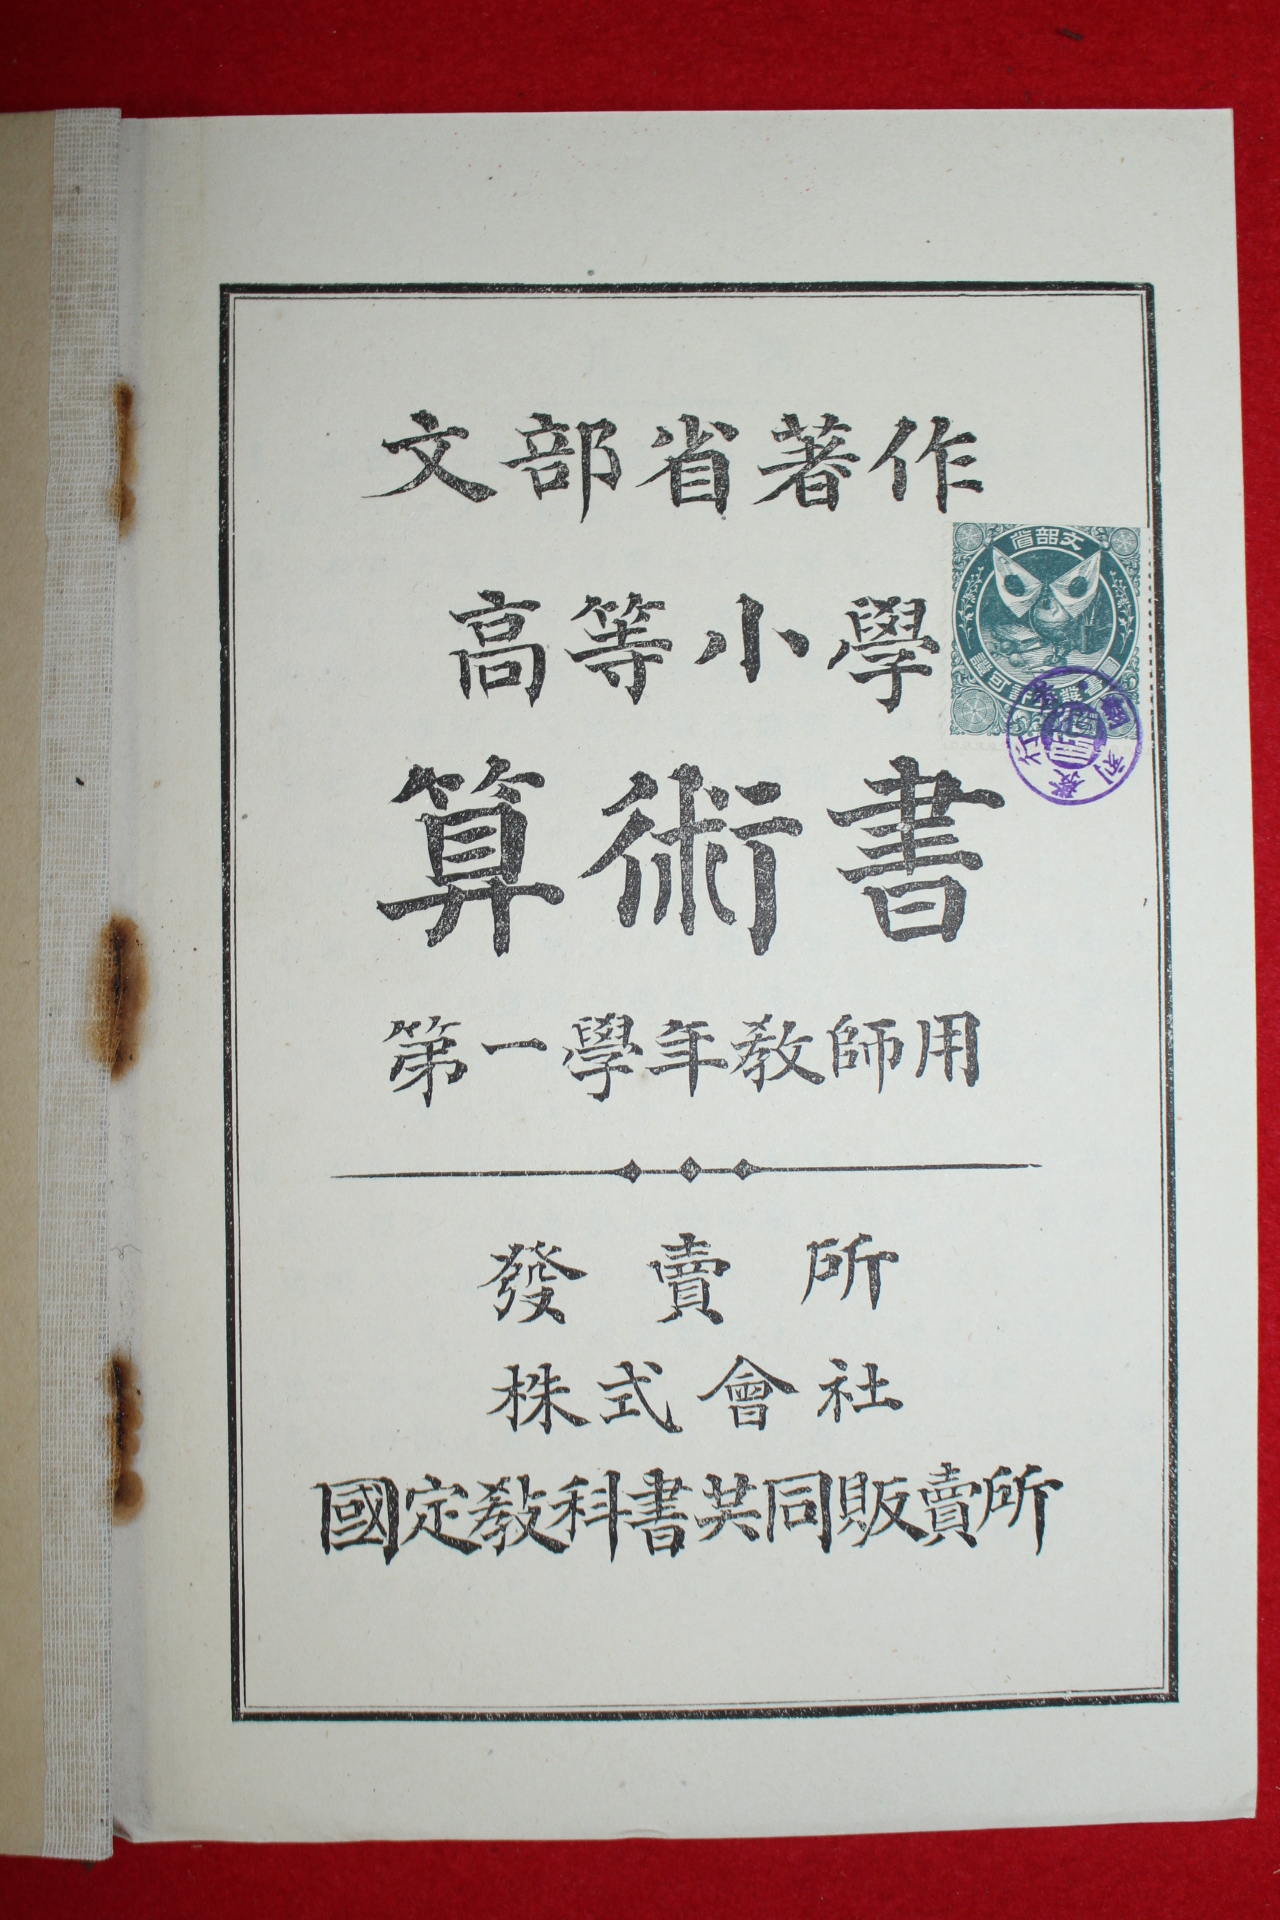 文部省著作
高等小學
算術書
第一學年敎師用
發賣所
株式會社
國定敎科書共同販賣所
文部省